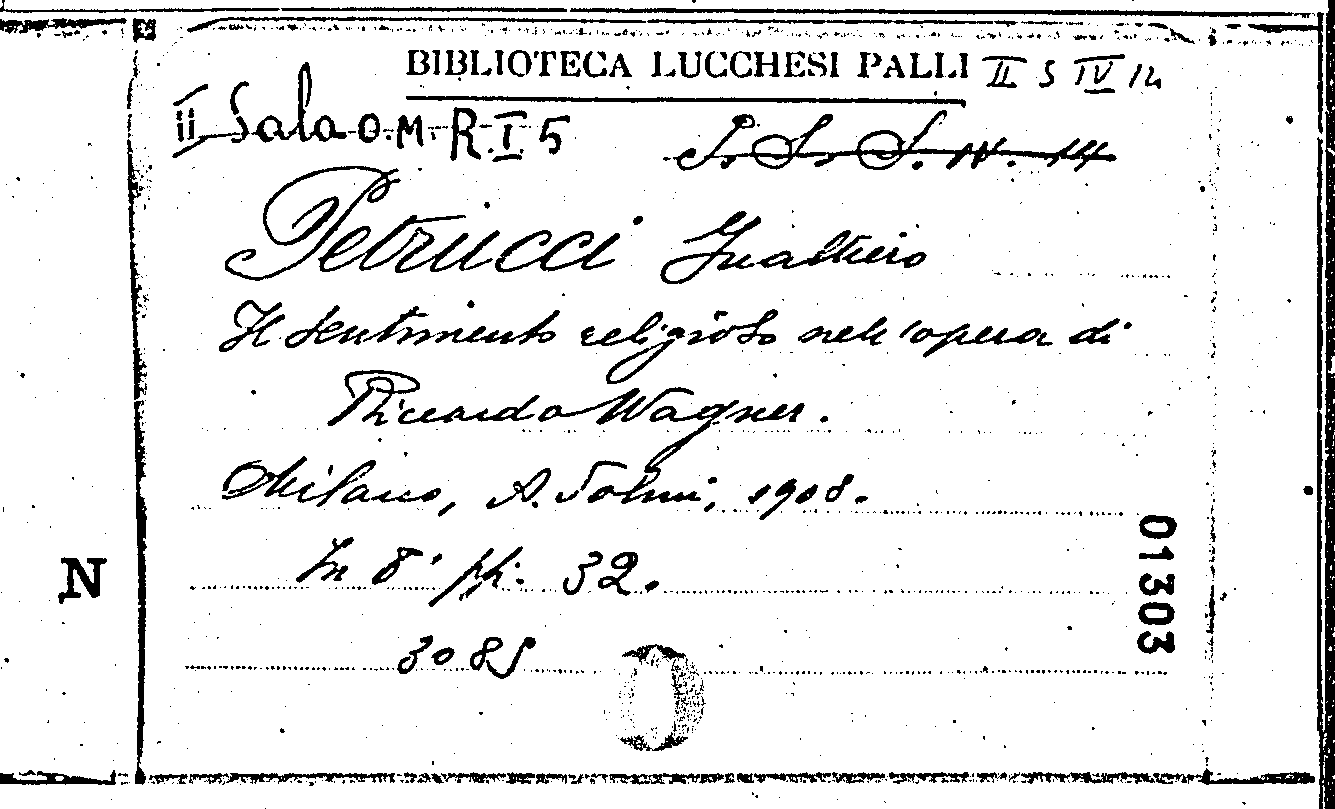 BIBLIOTECA LUCCHESI PALLI II S IV 14
II Sala O.M. R.I 5
S. S. S. IV. 14
Petrucci Gualtiero
Il sentimento religioso nell'opera di
Riccardo Wagner.
Milano, A. Solmi, 1908.
In 8° pp. 32.
N
01303
3085